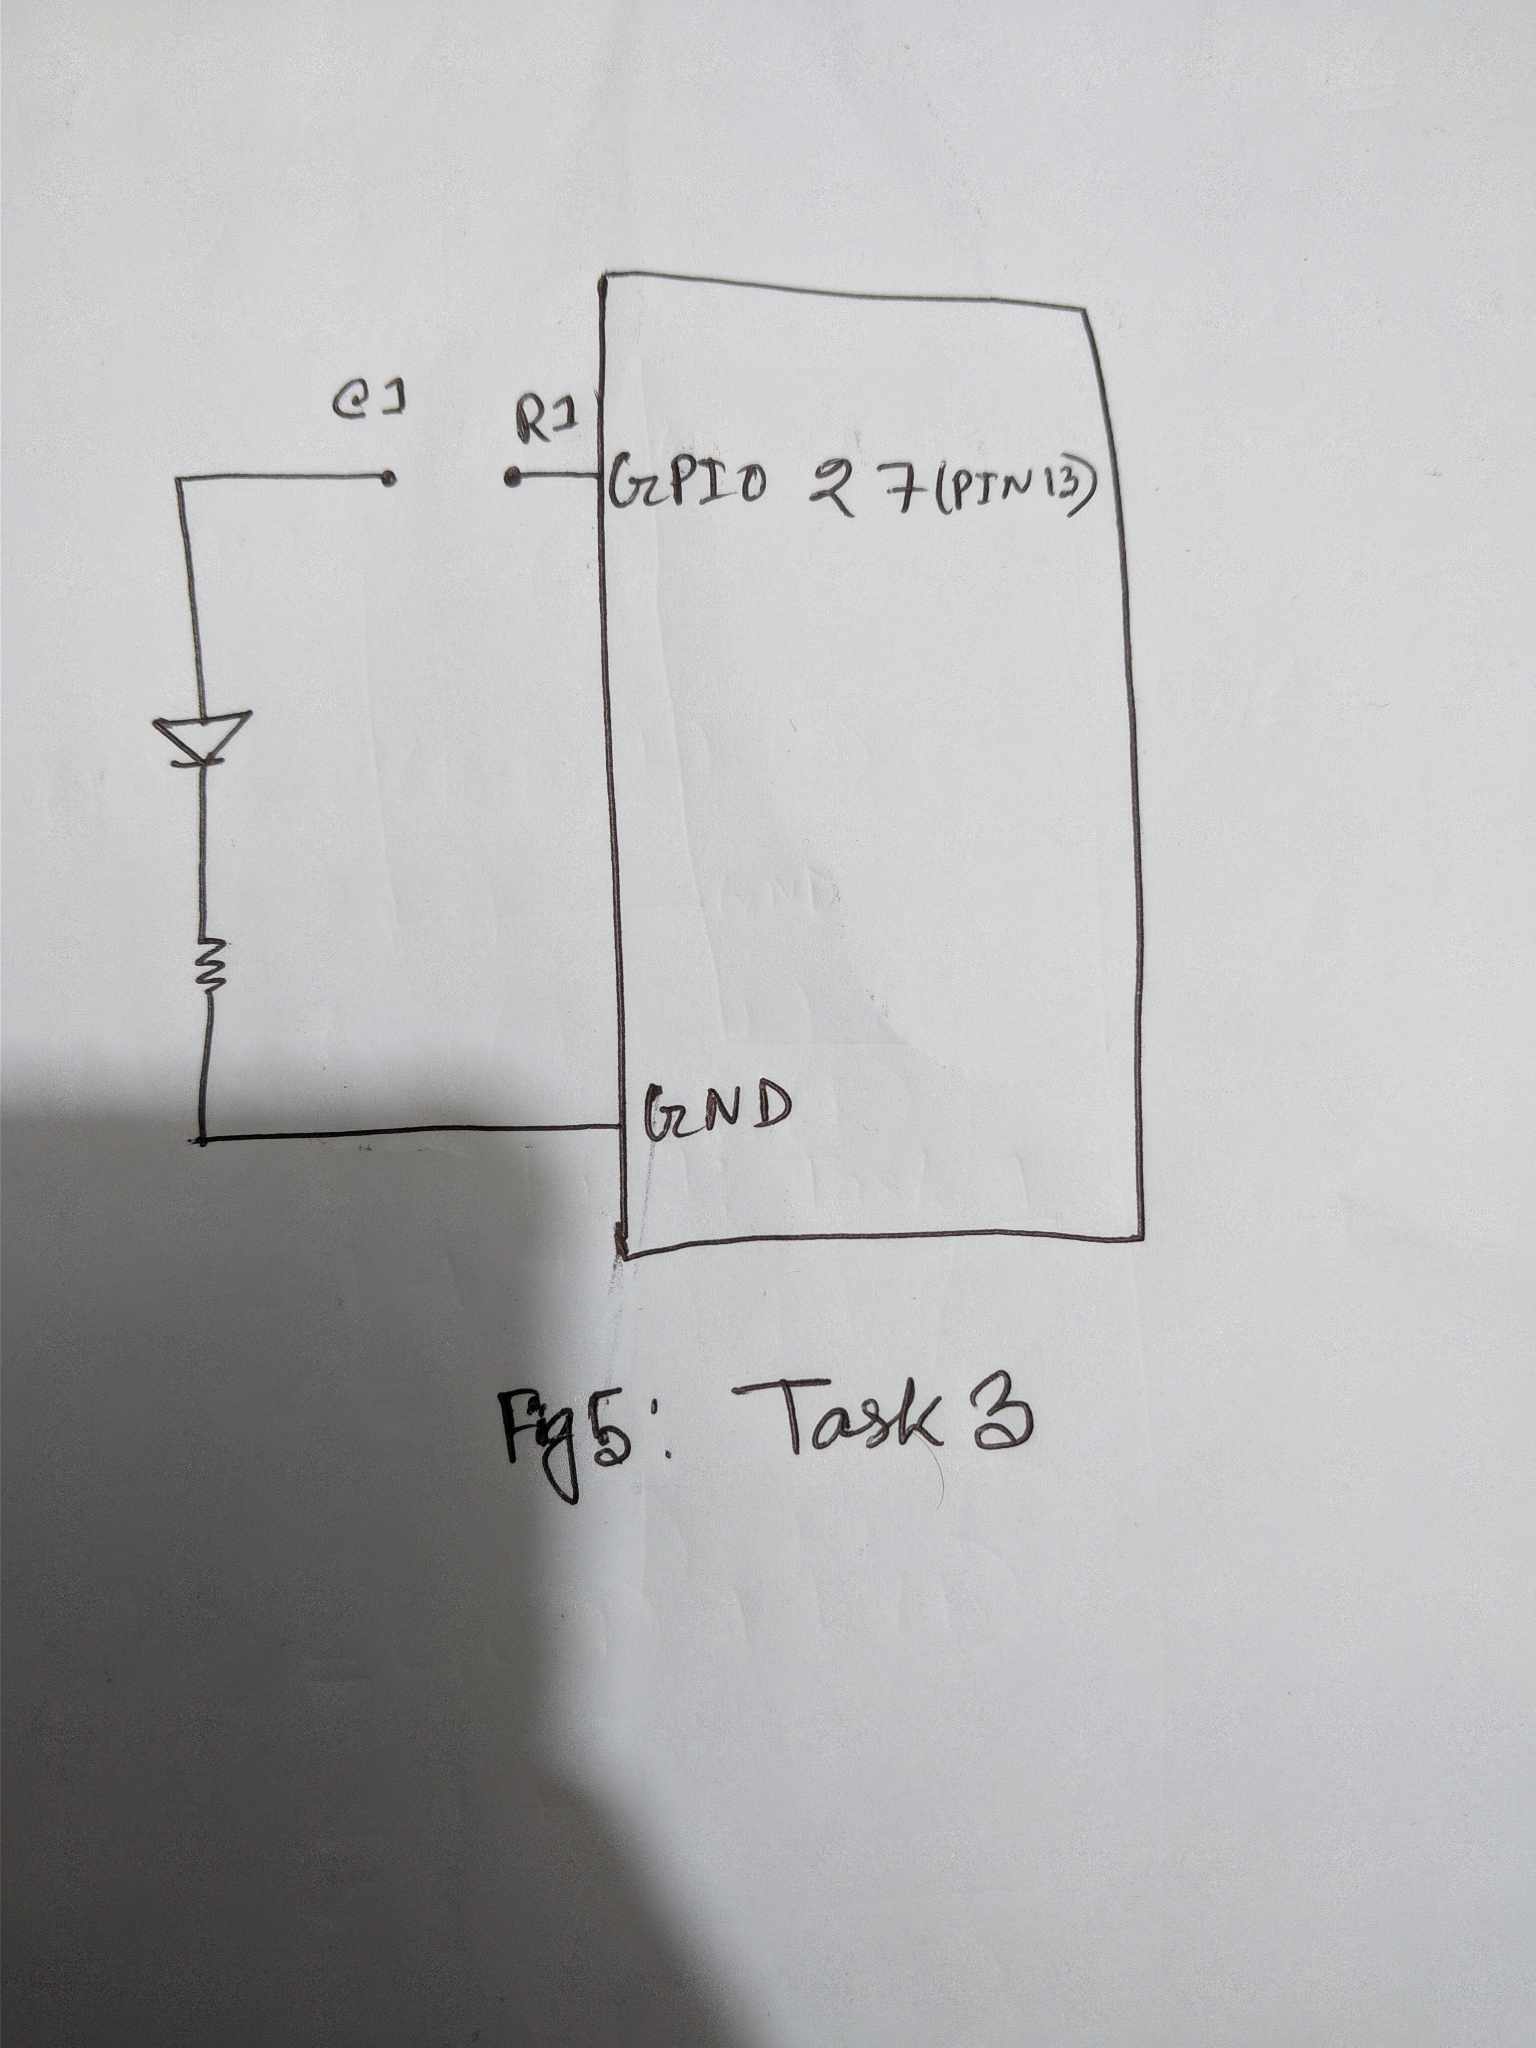 C1
R1
GPIO 27(PIN13)
GND
Fig5: Task 3